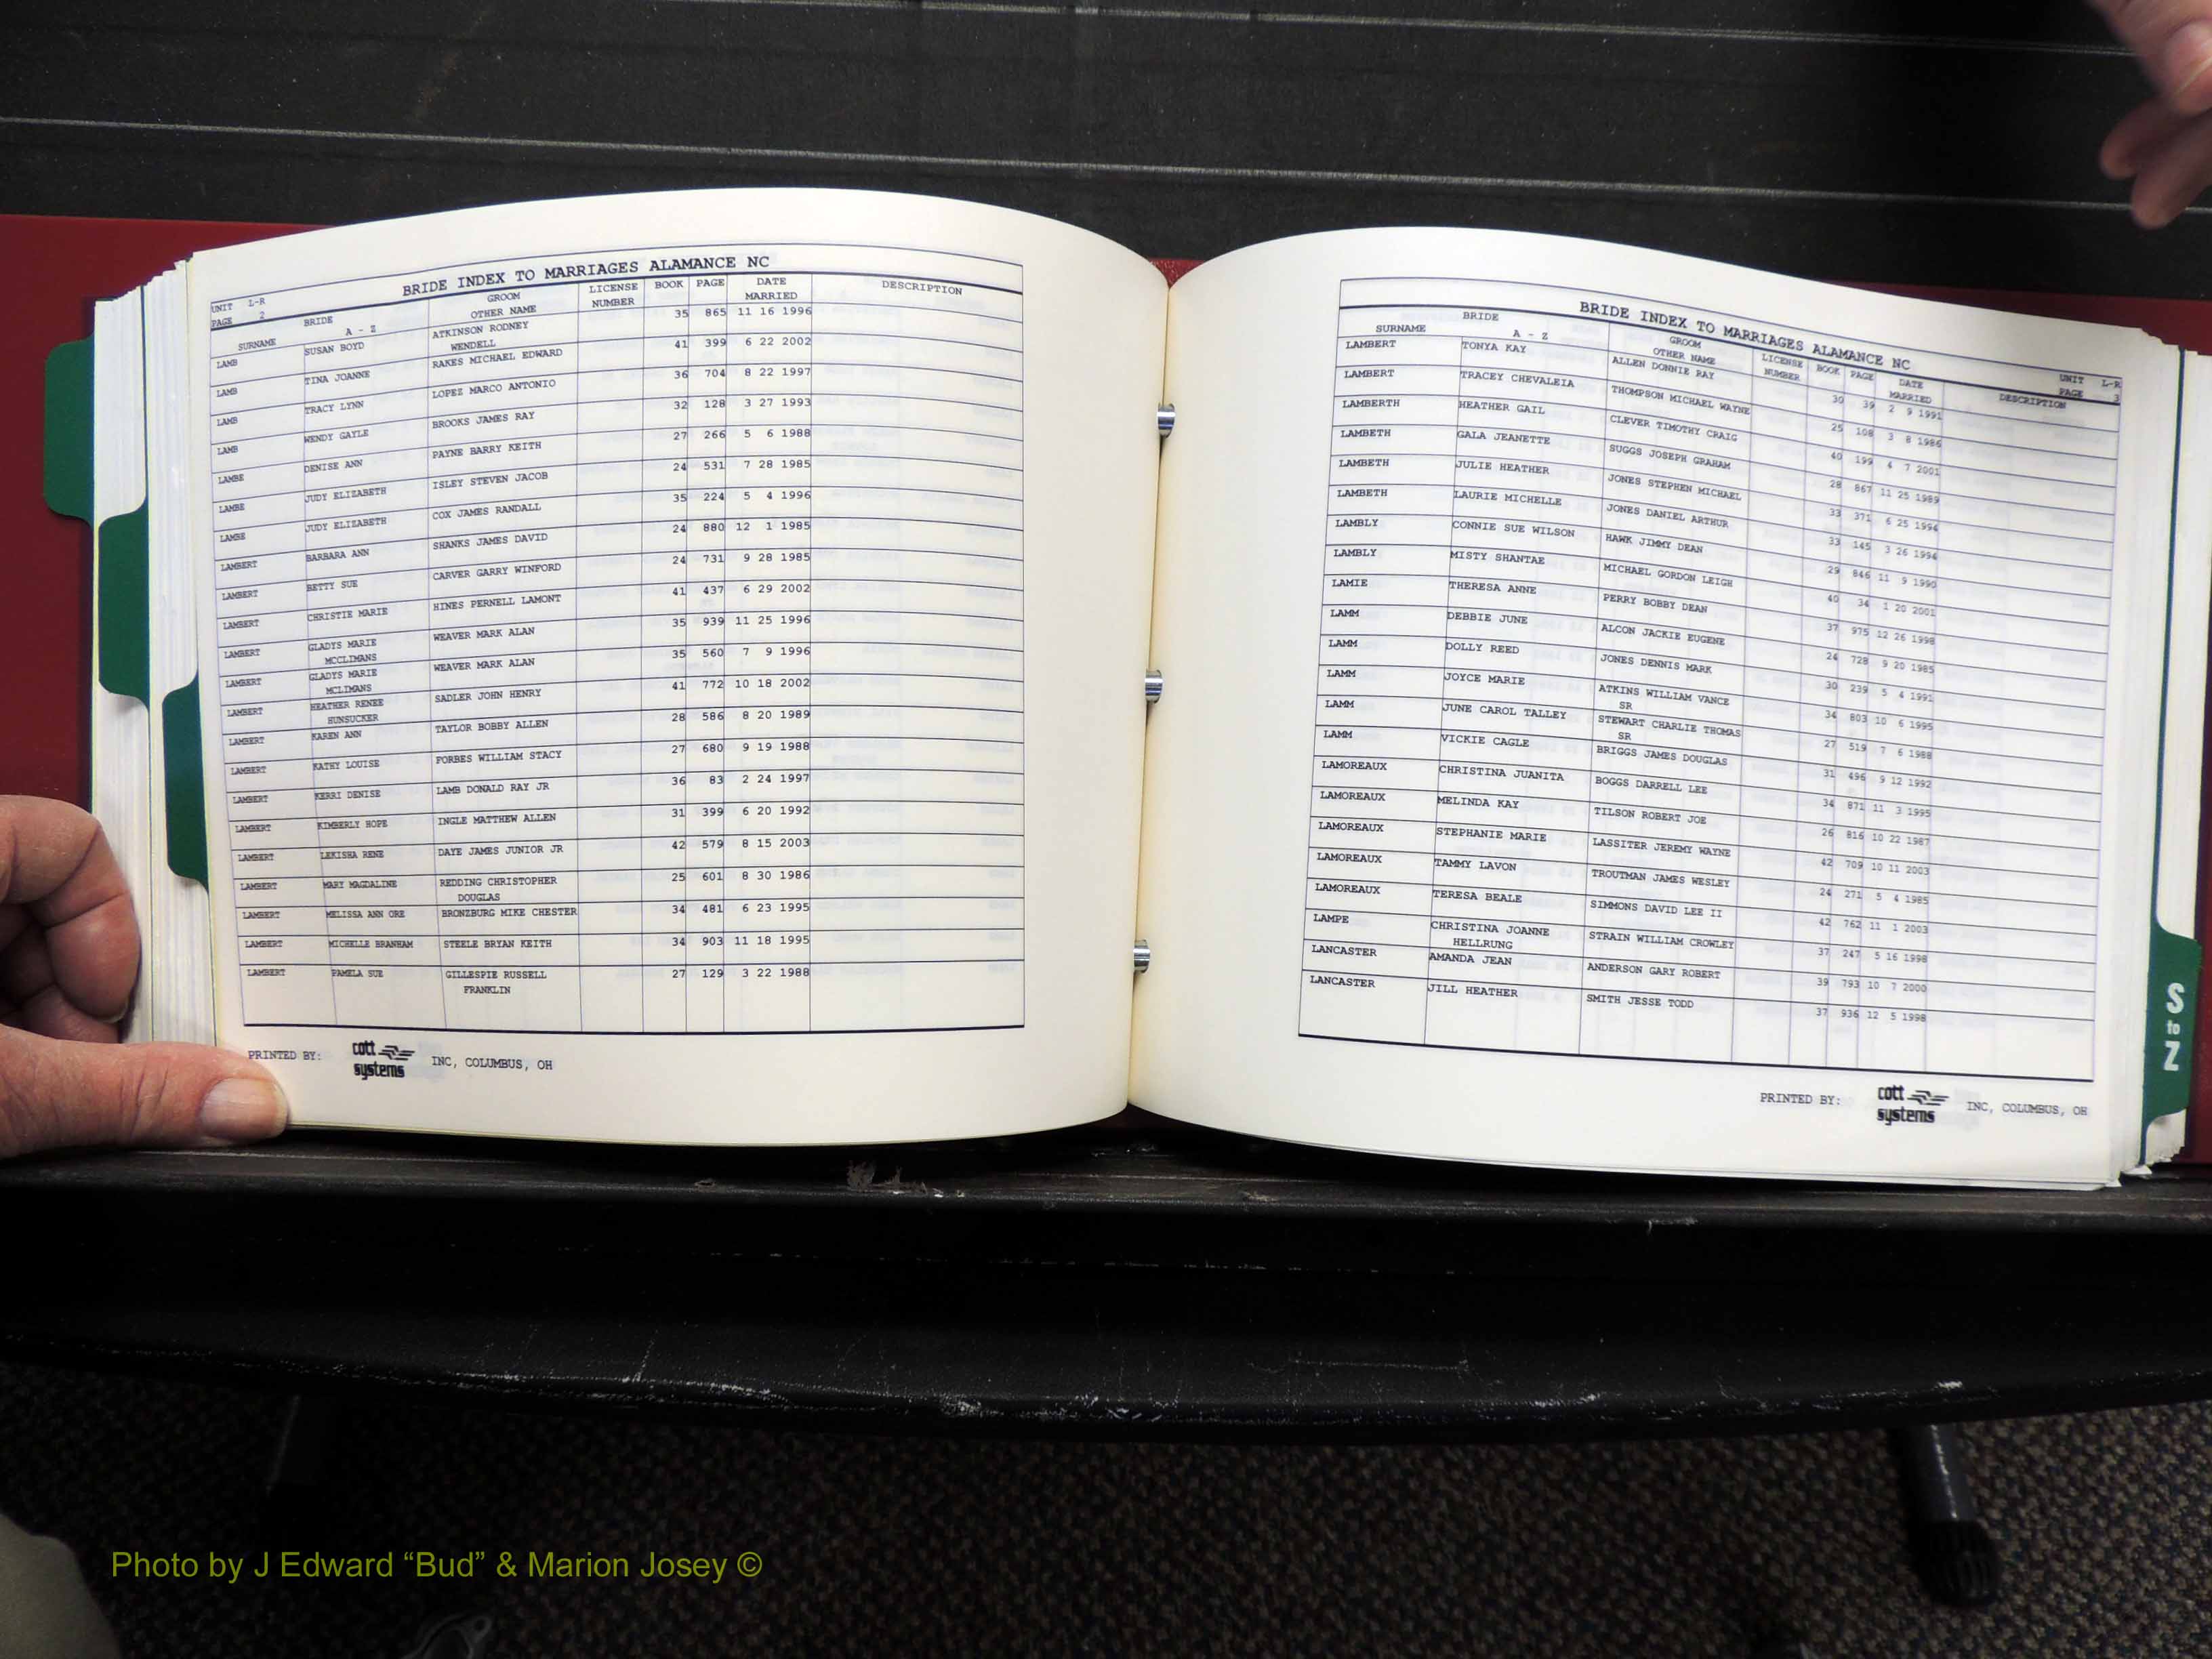 BRIDE INDEX TO MARRIAGES ALAMANCE NC
UNIT L-R
PAGE 2
BRIDE GROOM LICENSE BOOK PAGE DATE DESCRIPTION
SURNAME A - Z OTHER NAME NUMBER MARRIED
LAMB SUSAN BOYD ATKINSON RODNEY 35 865 11 16 1996
WENDELL
LAMB TINA JOANNE RAKES MICHAEL EDWARD 41 399 6 22 2002
LAMB TRACY LYNN LOPEZ MARCO ANTONIO 36 704 8 22 1997
LAMB WENDY GAYLE BROOKS JAMES RAY 32 128 3 27 1993
LAMBE DENISE ANN PAYNE BARRY KEITH 27 266 5 6 1988
LAMBE JUDY ELIZABETH ISLEY STEVEN JACOB 24 531 7 28 1985
LAMBE JUDY ELIZABETH COX JAMES RANDALL 35 224 5 4 1996
LAMBERT BARBARA ANN SHANKS JAMES DAVID 24 880 12 1 1985
LAMBERT BETTY SUE CARVER GARRY WINFORD 24 731 9 28 1985
LAMBERT CHRISTIE MARIE HINES PERNELL LAMONT 41 437 6 29 2002
LAMBERT GLADYS MARIE WEAVER MARK ALAN 35 939 11 25 1996
MCCLIMANS
LAMBERT GLADYS MARIE WEAVER MARK ALAN 35 560 7 9 1996
MCLIMANS
LAMBERT HEATHER RENEE SADLER JOHN HENRY 41 772 10 18 2002
HUNSUCKER
LAMBERT KAREN ANN TAYLOR BOBBY ALLEN 28 586 8 20 1989
LAMBERT KATHY LOUISE FORBES WILLIAM STACY 27 680 9 19 1988
LAMBERT KERRI DENISE LAMB DONALD RAY JR 36 83 2 24 1997
LAMBERT KIMBERLY HOPE INGLE MATTHEW ALLEN 31 399 6 20 1992
LAMBERT LEKISHA RENE DAYE JAMES JUNIOR JR 42 579 8 15 2003
LAMBERT MARY MAGDALINE REDDING CHRISTOPHER 25 601 8 30 1986
DOUGLAS
LAMBERT MELISSA ANN ORE BRONZBURG MIKE CHESTER 34 481 6 23 1995
LAMBERT MICHELLE BRANHAM STEELE BRYAN KEITH 34 903 11 18 1995
LAMBERT PAMELA SUE GILLESPIE RUSSELL 27 129 3 22 1988
FRANKLIN
PRINTED BY: cott systems INC, COLUMBUS, OH
BRIDE INDEX TO MARRIAGES ALAMANCE NC
UNIT L-R
PAGE 3
BRIDE GROOM LICENSE BOOK PAGE DATE DESCRIPTION
SURNAME A - Z OTHER NAME NUMBER MARRIED
LAMBERT TONYA KAY ALLEN DONNIE RAY 30 39 2 9 1991
LAMBERT TRACEY CHEVALEIA THOMPSON MICHAEL WAYNE 25 108 3 8 1986
LAMBERTH HEATHER GAIL CLEVER TIMOTHY CRAIG 40 199 4 7 2001
LAMBETH GALA JEANETTE SUGGS JOSEPH GRAHAM 28 867 11 25 1989
LAMBETH JULIE HEATHER JONES STEPHEN MICHAEL 33 371 6 25 1994
LAMBETH LAURIE MICHELLE JONES DANIEL ARTHUR 33 145 3 26 1994
LAMBLY CONNIE SUE WILSON HAWK JIMMY DEAN 29 846 11 9 1990
LAMBLY MISTY SHANTAE MICHAEL GORDON LEIGH 40 34 1 20 2001
LAMIE THERESA ANNE PERRY BOBBY DEAN 37 975 12 26 1998
LAMM DEBBIE JUNE ALCON JACKIE EUGENE 24 728 9 20 1985
LAMM DOLLY REED JONES DENNIS MARK 30 239 5 4 1991
LAMM JOYCE MARIE ATKINS WILLIAM VANCE 34 803 10 6 1995
SR
LAMM JUNE CAROL TALLEY STEWART CHARLIE THOMAS 27 519 7 6 1988
SR
LAMM VICKIE CAGLE BRIGGS JAMES DOUGLAS 31 496 9 12 1992
LAMOREAUX CHRISTINA JUANITA BOGGS DARRELL LEE 34 871 11 3 1995
LAMOREAUX MELINDA KAY TILSON ROBERT JOE 26 816 10 22 1987
LAMOREAUX STEPHANIE MARIE LASSITER JEREMY WAYNE 42 709 10 11 2003
LAMOREAUX TAMMY LAVON TROUTMAN JAMES WESLEY 24 271 5 4 1985
LAMOREAUX TERESA BEALE SIMMONS DAVID LEE II 42 762 11 1 2003
LAMPE CHRISTINA JOANNE STRAIN WILLIAM CROWLEY 37 247 5 16 1998
HELLRUNG
LANCASTER AMANDA JEAN ANDERSON GARY ROBERT 39 793 10 7 2000
LANCASTER JILL HEATHER SMITH JESSE TODD 37 936 12 5 1998
PRINTED BY: cott systems INC, COLUMBUS, OH
S
to
Z
Photo by J Edward “Bud” & Marion Josey ©